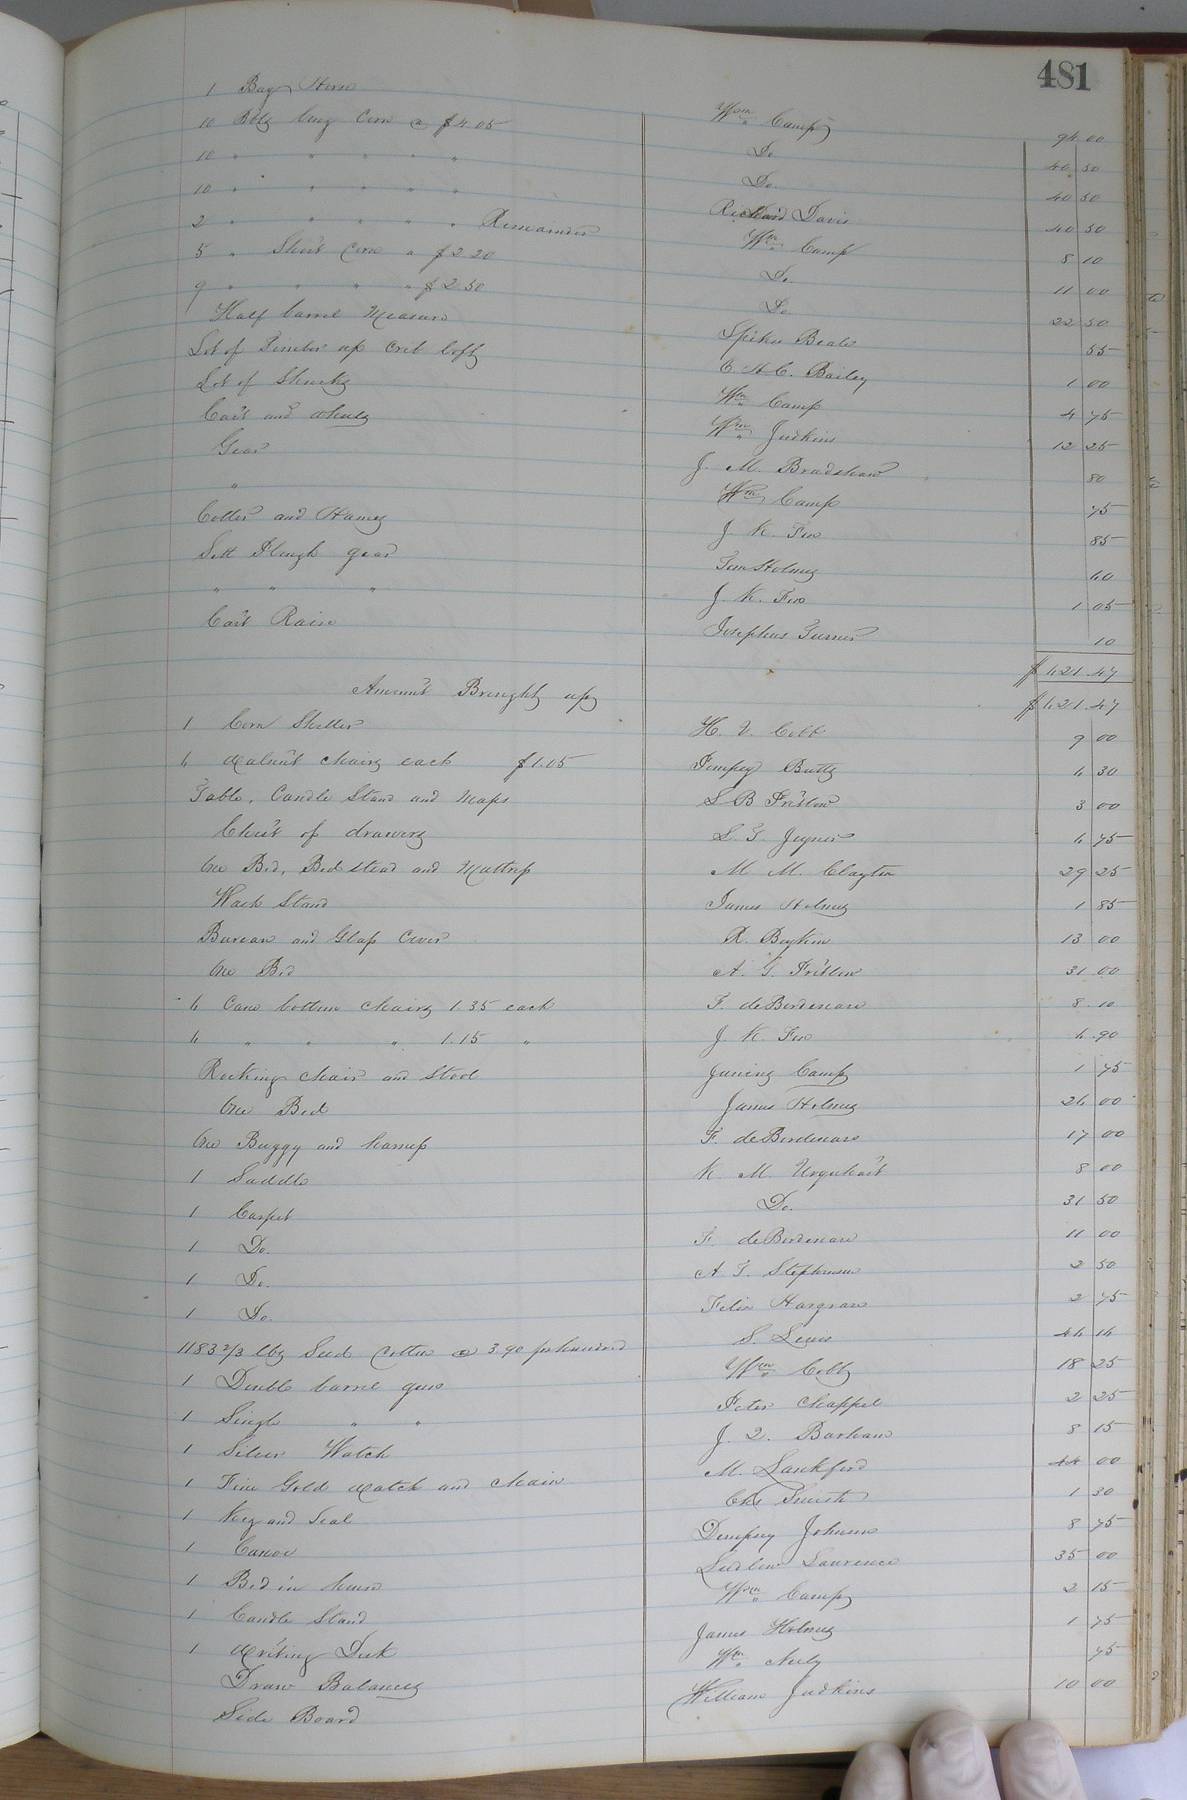 481
1 Bay Horse Wm Camp 94 00
10 Bbls long Corn @ $4.05 Do 40 50
10 " " " " " Do. 40 50
10 " " " " " Richard Davis 40 50
2 " " " " " Remainder Wm Camp 8 10
5 " Short Corn " $2.20 Do. 11 00
9 " " " " $2.50 Do 22 50
Half barrel Measure Spikes Beale 55
Lot of Timber up Crib loft E. H. C. Bailey 1 00
Lot of Shucks Wm Camp 4 75
Cart and Wheels Wm Judkins 12 25
Gear J. M. Bradshaw 80
" Wm Camp 75
Coller and Hames J. K. Fox 85
Sett Plough gear Tom Holmes 60
" " " J. K. Fox 1 05
Cart Rain Josephus Turner 10
$621.47
Amount Brought up $621.47
1 Corn Sheller H. V. Cobb 9 00
6 Walnut chairs each $1.05 Dempsey Butts 6 30
Table, Candle Stand and Maps S B Fristow 3 00
Chest of drawers L. T. Joyner 6 75
One Bed, Bedstead and Mattress M. M. Clayton 29 25
Wash Stand James Holmes 1 85
Bureau and Glass Cover R. Boykin 13 00
One Bed A. G. Fristow 31 00
6 Cane bottom chairs 1.35 each F. deBordenave 8 10
6 " " " 1.15 " J. K. Fox 6 90
Rocking chair and Stool Junius Camp 1 75
One Bed James Holmes 26 00
One Buggy and harness F. deBordenave 17 00
1 Saddle K. M. Urquhart 8 00
1 Carpet Do. 31 50
1 Do. F. deBordenave 11 00
1 Do. A T. Stephenson 2 50
1 Do. Felix Hargrave 2 75
1183 2/3 lbs Seed Cotton @ 3.90 pr hundred S. Lewis 46 16
1 Double barrel gun Wm Cobb 18 25
1 Single " " Peter Chappel 2 25
1 Silver Watch J. Q. Barham 8 15
1 Fine Gold watch and chain M. Lankford 44 00
1 Key and Seal Chs Smith 1 30
1 Canoe Dempsey Johnson 8 75
1 Bed in house Ludlow Laurence 35 00
1 Candle Stand Wm Camp 2 15
1 Writing Desk James Holmes 1 75
Draw Balances Wm Neely 75
Side Board William Judkins 10 00